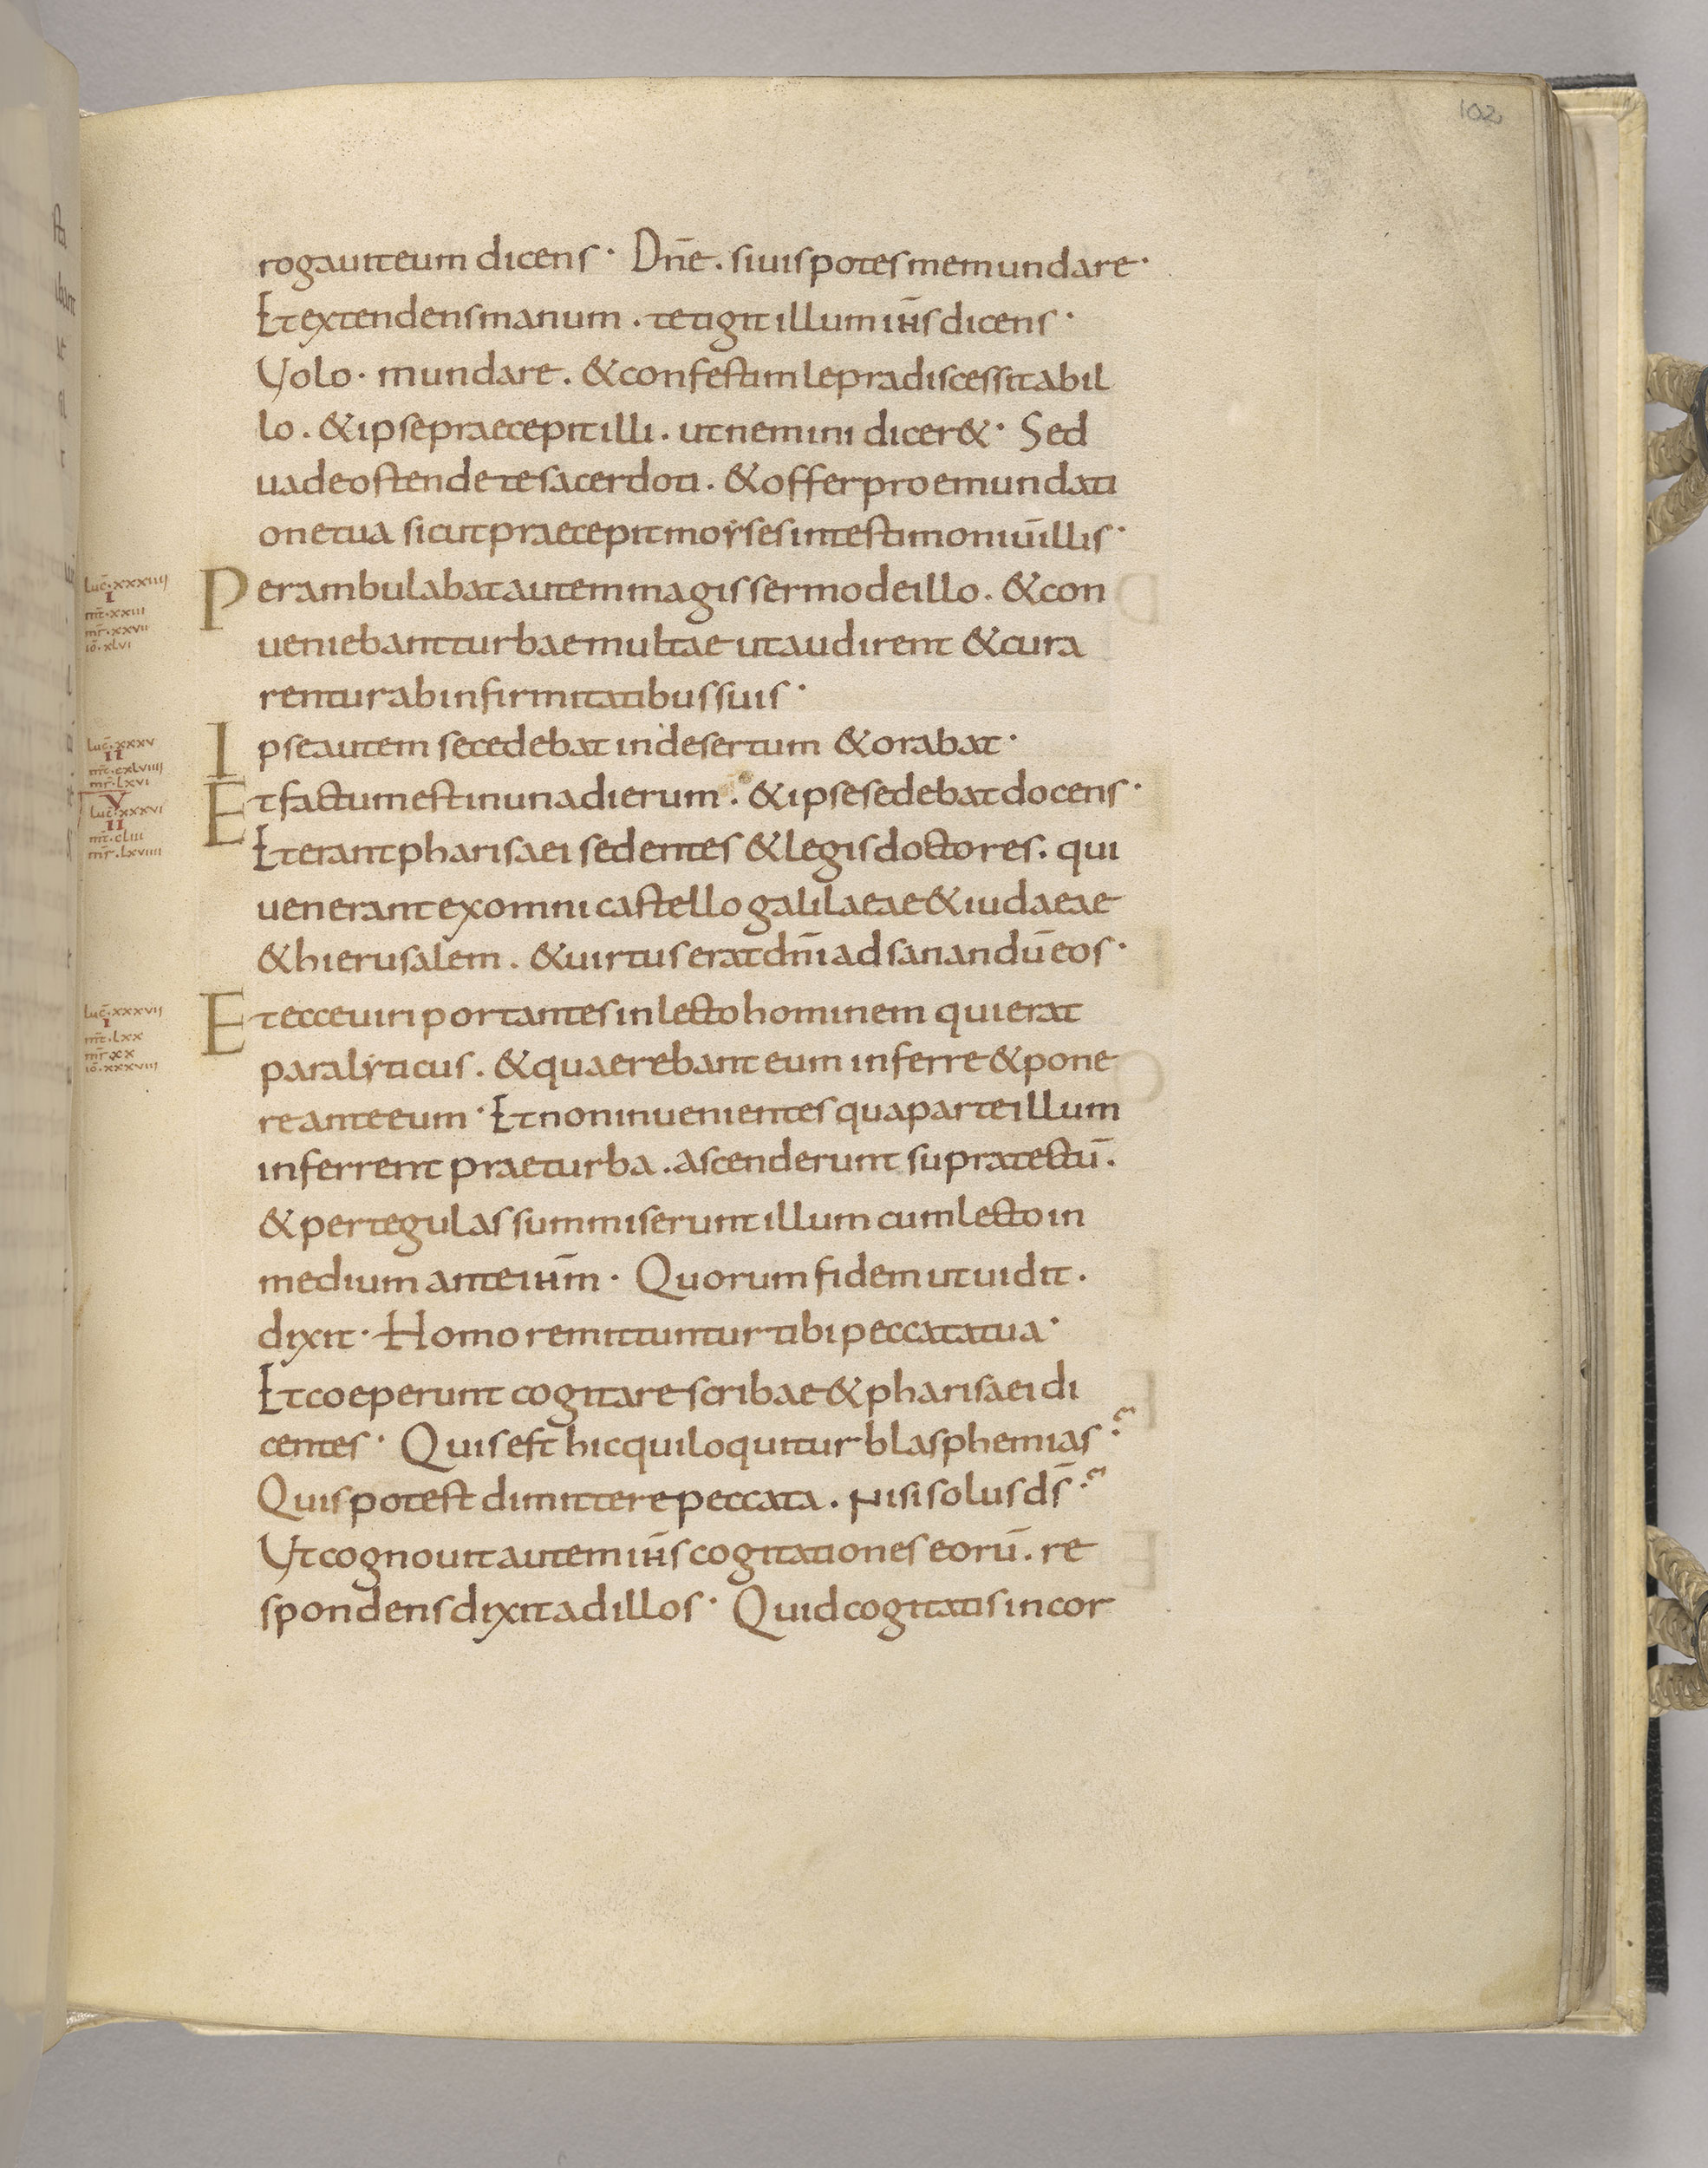 102
rogauit eum dicens· Dn̄e. si uis potes me mundare·
Et extendens manum. tetigit illum ih̄s dicens·
Volo· mundare. & confestim lepra discessit ab il
lo. & ipse praecepit illi. ut nemini dicer&· Sed
uade ostende te sacerdoti. & offer pro emundati
one tua sicut praecepit moẏses in testimoniū illis·
luc̄·xxxiiii
I
mt̄·xxiii
mr̄·xxvii
iō·xlvi
Perambulabat autem magis sermo de illo. & con
ueniebant turbae multae ut audirent & cura
rentur ab infirmitatibus suis·
luc̄·xxxv
II
mt̄·cxlviiii
mr̄·lxvi
Ipse autem secedebat in desertum & orabat·
V
luc̄·xxxvi
II
mt̄·cliii
mr̄·lxviiii
Et factum est in una dierum. & ipse sedebat docens·
Et erant pharisaei sedentes & legis doctores. qui
uenerant ex omni castello galilaeae & iudaeae
& hierusalem. & uirtus erat dn̄i ad sanandū eos·
luc̄·xxxvii
I
mt̄·lxx
mr̄·xx
iō·xxxviii
Et ecce uiri portantes in lecto hominem qui erat
paralẏticus. & quaerebant eum inferre & pone
re ante eum· Et non inuenientes qua parte illum
inferrent prae turba. ascenderunt supra tectū.
& per tegulas summiserunt illum cum lecto in
medium ante ih̄m· Quorum fidem ut uidit.
dixit· Homo remittuntur tibi peccata tua·
Et coeperunt cogitare scribae & pharisaei di
centes· Quis est hic qui loquitur blasphemias?
Quis potest dimittere peccata. nisi solus ds̄?
Vt cognouit autem ih̄s cogitationes eorū. re
spondens dixit ad illos· Quid cogitatis in cor